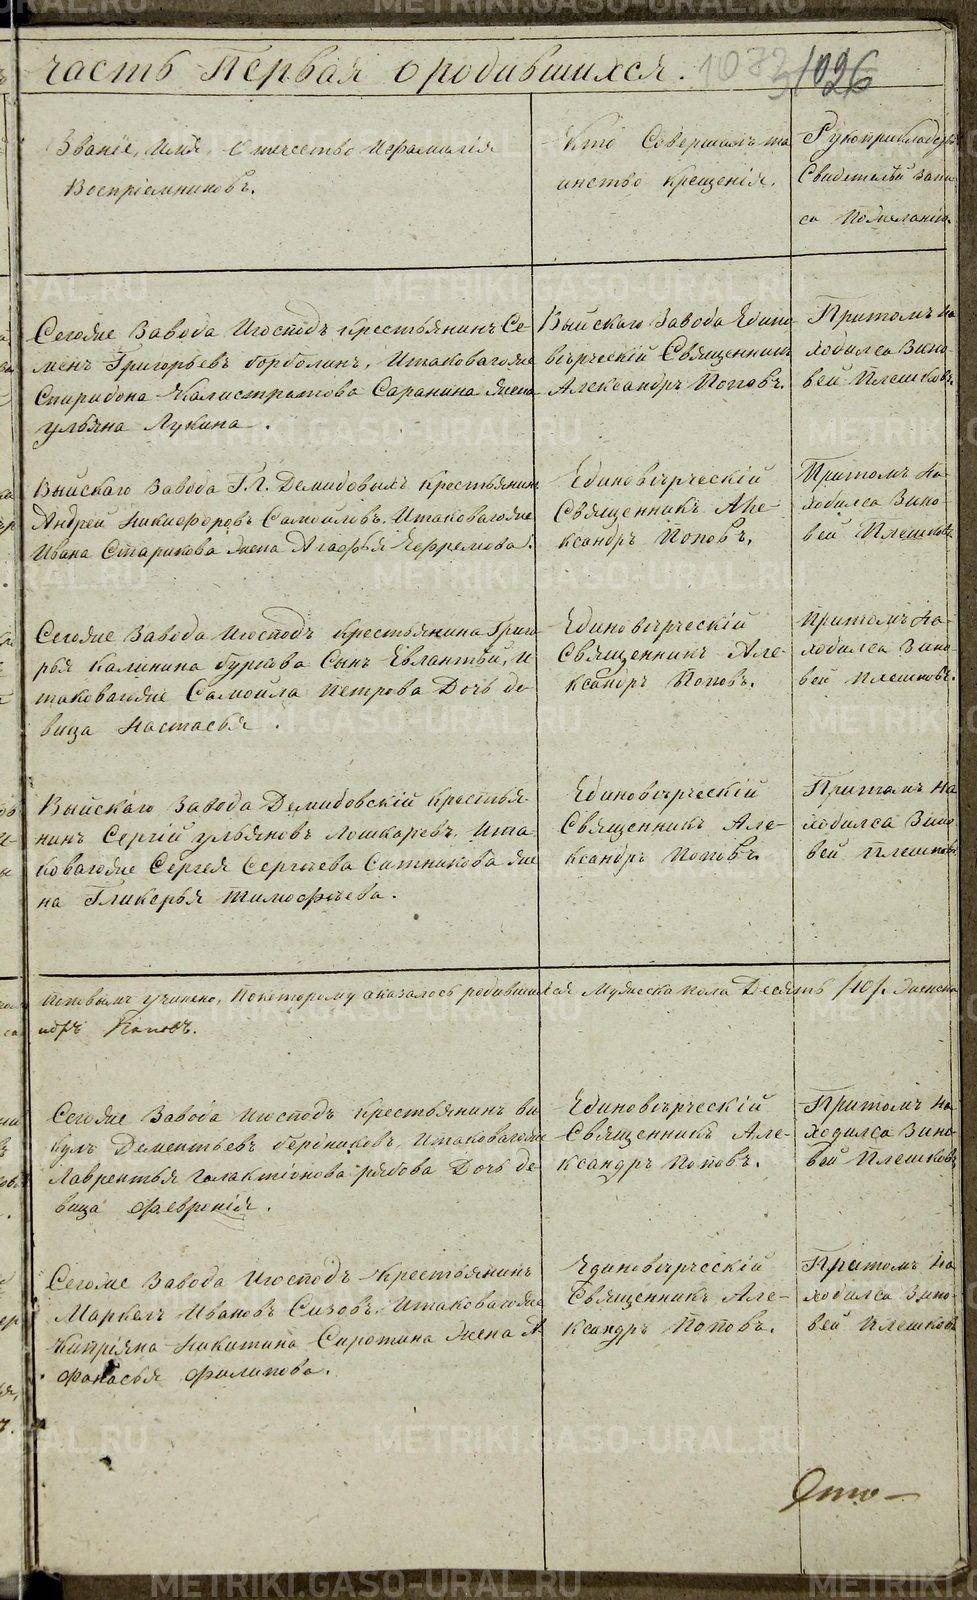 часть Первая о родившихся. 1073 1026
Званіе, Имя, Отчество Ифамилія
Воспріемниковъ.
Кто Совершалъ та
инство крещенія.
Рукоприкладс
Свидетелей Запи
си Пожеланію.
Сегоже Завода Игосподъ крестьянинъ Се
менъ Григорьевъ борболинъ, Итаковагоже
Спиридона Калистратова Саранина жена
ульяна Лукина.
Выйскаго Завода Едино
вѣрческій Священникъ
Александръ Поповъ.
Притомъ на
ходился Зино
вей Плешковъ.
Выйскаго Завода Г.Г. Демидовыхъ крестьянин
Андрей Никифоровъ Самойловъ, Итаковагоже
Ивана Старикова жена Агафья Ефремова.
Единовѣрческій
Священникъ Але-
ксандръ Поповъ.
Притомъ На-
ходился Зино-
вей Плешковъ
Сегоже Завода Игосподъ крестьянина Григо
рья Калинина бурцова Сынъ Евлантей, и
таковагоже Самойла Петрова Дочь де-
вица Настасья.
Единовѣрческій
Священникъ Але-
ксандръ Поповъ.
Притомъ На-
ходился Зино-
вей Плешковъ.
Выйскаго Завода Демидовскій крестья-
нинъ Сергій ульяновъ Лошкаревъ, Ита-
ковагоже Сергея Сергѣева Ситникова же
на Гликерья тимофѣева.
Единовѣрческій
Священникъ Але-
ксандръ Поповъ.
Притомъ На
ходился Зино-
вей Плешковъ
учинено, Покоторому оказалось родившихся Мужеска пола Десять /10/. Женска
Поповъ.
Сегоже Завода Игосподъ крестьянинъ ви
кулъ Дементьевъ бердниковъ, Итаковагоже
Лаврентья Галактіонова рябова Дочь де-
вица Февронія.
Единовѣрческій
Священникъ Але-
ксандръ Поповъ.
Притомъ На
ходился Зино
вей Плешковъ
Сегоже Завода Игосподъ Крестьянинъ
Маркелъ Ивановъ Сизовъ, Итаковагоже
Кипріяна Никитина Сиротина Жена А
фанасья Филипова.
Единовѣрческій
Священникъ Але-
ксандръ Поповъ.
Притомъ На
ходился Зино-
вей Плешковъ
METRIKI.GASO-URAL.RU